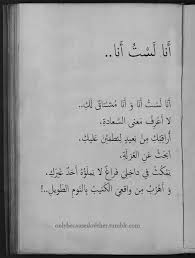 أَنَا لَسْتُ أَنَا..
أَنَا لَسْتُ أَنَا وَ أَنَا مُشْتَاقٌ لَكِ..
لا أَعْرِفُ مَعْنَى السَّعَادةِ.
أُرَاقِبُكِ مِنْ بَعِيدٍ لِتَطْمَئِنَّ عَلَيكِ.
ابْحَثُ عَنِ العُزْلَةِ.
يَمْكُثُ فِي دَاخِلِي فَرَاغٌ لا يَمْلَؤهُ أَحَدٌ غَيْرُكِ.
وَ أَهْرُبُ مِن وَاقِعِي الكَئِيبِ بِالنَّومِ الطَّوِيلِ..!
onlybecauseiknowher.tumblr.com